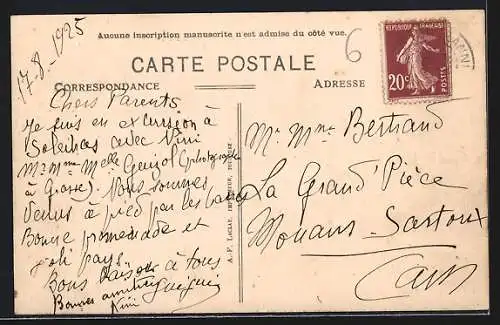 17-8-1925
Aucune inscription manuscrite n'est admise du côté vue.
6
CARTE POSTALE
RÉPUBLIQUE FRANÇAISE
20c
POSTES
CORRESPONDANCE
ADRESSE
Chers Parents
Je suis en excursion à
avec Nini
Mr Mme Melle (photographe
à Grasse). Nous sommes
venus à pied par les
Bonne promenade et
joli pays.
Bons à tous
Bonnes amitiés
Nini
Mr Mme Bertrand
La Grand'Pièce
Mouans-Sartoux